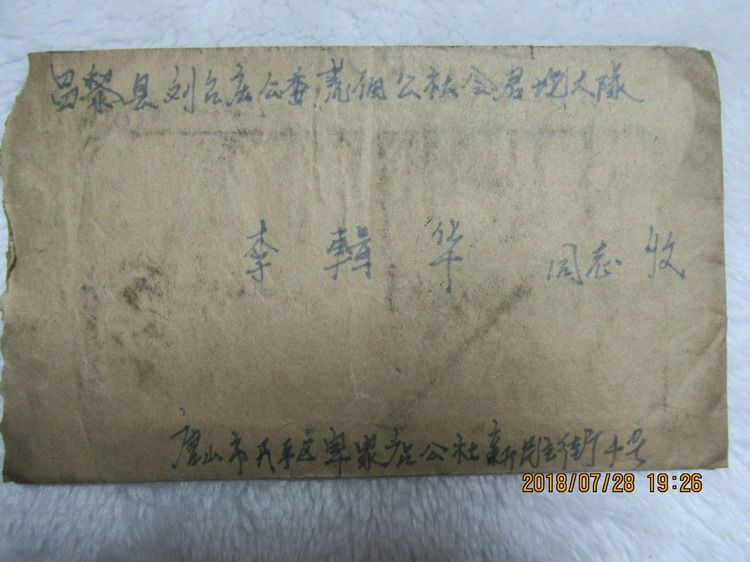 昌黎县刘台庄公委荒佃公社会君坨大隊
李 华 同志 收
唐山市 区 家店公社新民主街十号
2018/07/28 19:26